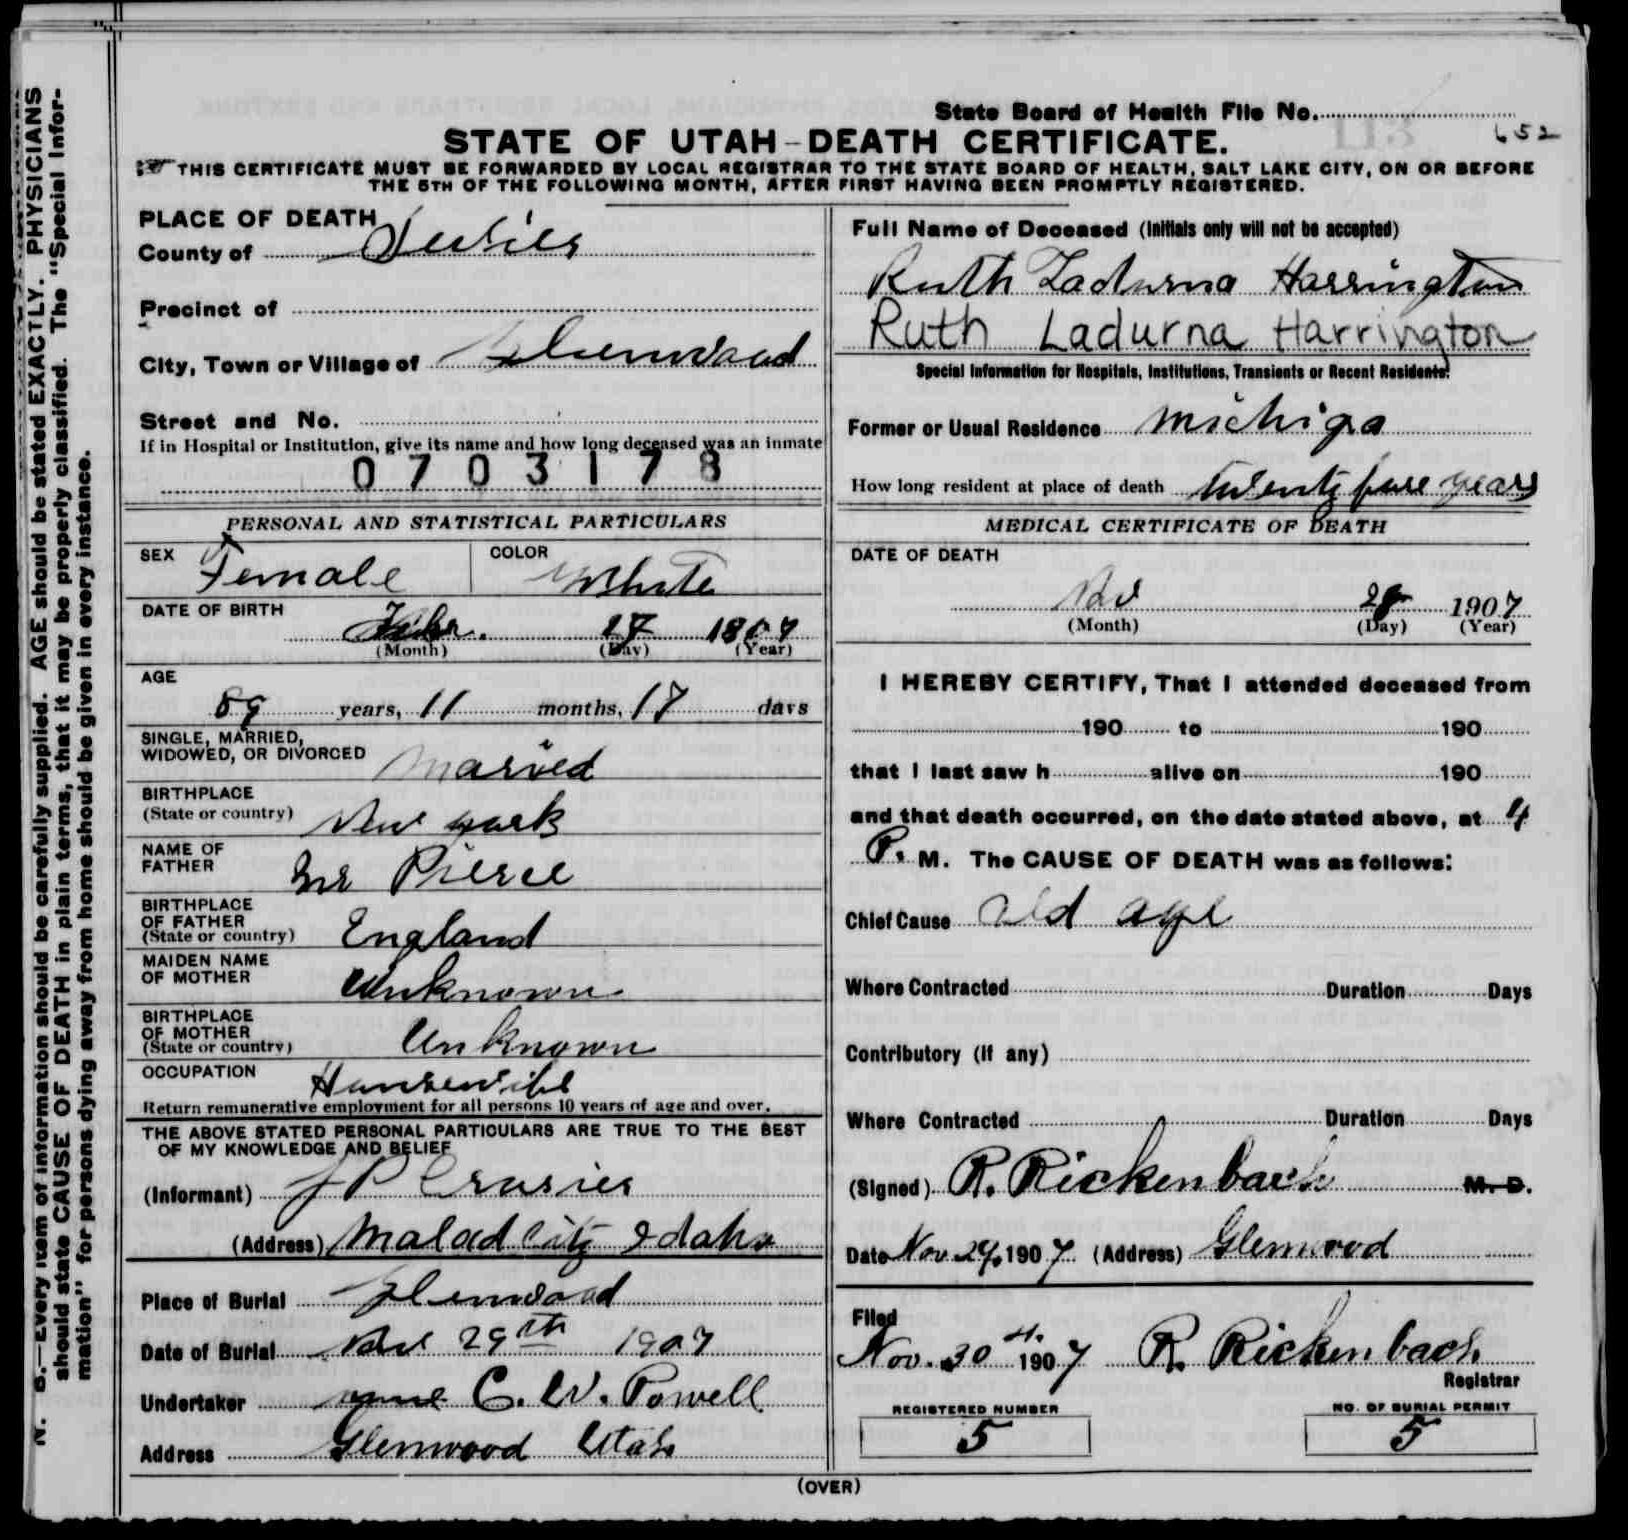 N. B.—Every item of information should be carefully supplied. AGE should be stated EXACTLY. PHYSICIANS
should state CAUSE OF DEATH in plain terms, that it may be properly classified. The "Special Infor-
mation" for persons dying away from home should be given in every instance.
State Board of Health File No.
652
STATE OF UTAH—DEATH CERTIFICATE.
THIS CERTIFICATE MUST BE FORWARDED BY LOCAL REGISTRAR TO THE STATE BOARD OF HEALTH, SALT LAKE CITY, ON OR BEFORE
THE 5TH OF THE FOLLOWING MONTH, AFTER FIRST HAVING BEEN PROMPTLY REGISTERED.
PLACE OF DEATH
County of Sevier
Precinct of
City, Town or Village of Glenwood
Street and No.
If in Hospital or Institution, give its name and how long deceased was an inmate
0703178
PERSONAL AND STATISTICAL PARTICULARS
SEX Female COLOR White
DATE OF BIRTH
(Month) (Day) (Year)
AGE
89 years, 11 months, 17 days
SINGLE, MARRIED,
WIDOWED, OR DIVORCED Married
BIRTHPLACE
(State or country) New York
NAME OF
FATHER Mr Pierce
BIRTHPLACE
OF FATHER
(State or country) England
MAIDEN NAME
OF MOTHER Unknown
BIRTHPLACE
OF MOTHER
(State or country) Unknown
OCCUPATION Housewife
Return remunerative employment for all persons 10 years of age and over.
THE ABOVE STATED PERSONAL PARTICULARS ARE TRUE TO THE BEST
OF MY KNOWLEDGE AND BELIEF
(Informant) J P
(Address) Malad City Idaho
Place of Burial Glenwood
Date of Burial Nov 29th 1907
Undertaker C. W. Powell
Address Glenwood Utah
Full Name of Deceased (Initials only will not be accepted)
Ruth Ladurna Harrington
Ruth Ladurna Harrington
Special Information for Hospitals, Institutions, Transients or Recent Residents.
Former or Usual Residence Michiga
How long resident at place of death twenty five years
MEDICAL CERTIFICATE OF DEATH
DATE OF DEATH
Nov 28 1907
(Month) (Day) (Year)
I HEREBY CERTIFY, That I attended deceased from
190 to 190
that I last saw h alive on 190
and that death occurred, on the date stated above, at 4
P. M. The CAUSE OF DEATH was as follows:
Chief Cause old age
Where Contracted Duration Days
Contributory (if any)
Where Contracted Duration Days
(Signed) R. Rickenbach M. D.
Date Nov 29, 1907 (Address) Glenwood
Filed
Nov. 30 1907 R. Rickenbach
Registrar
REGISTERED NUMBER
5
NO. OF BURIAL PERMIT
5
(OVER)